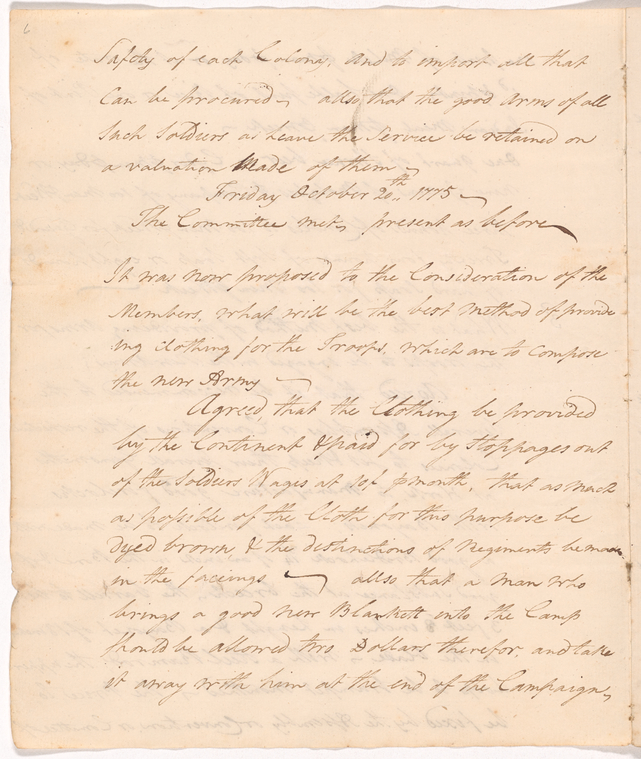 6
Safety of each Colony, and to import all that
Can be procured – allso that the good Arms of all
Such Soldiers as leave the Service be retained on
a valuation Made of them –
Friday October 20th. 1775 –
The Committee met, present as before
It was now proposed to the Consideration of the
Members, what will be the best Method of provide
ing clothing for the Troops, which are to Compose
the new Army –
Agreed, that the Clothing be provided
by the Continent & paid for by Stoppages out
of the Soldiers Wages at 10/ p month, that as much
as possible of the Cloth for this purpose be
dyed brown, & the distinctions of Regiments be made
in the facings – allso that a man who
brings a good new Blankett into the Camp
should be allowed two Dollars therefor, and take
it away with him at the end of the Campaign,